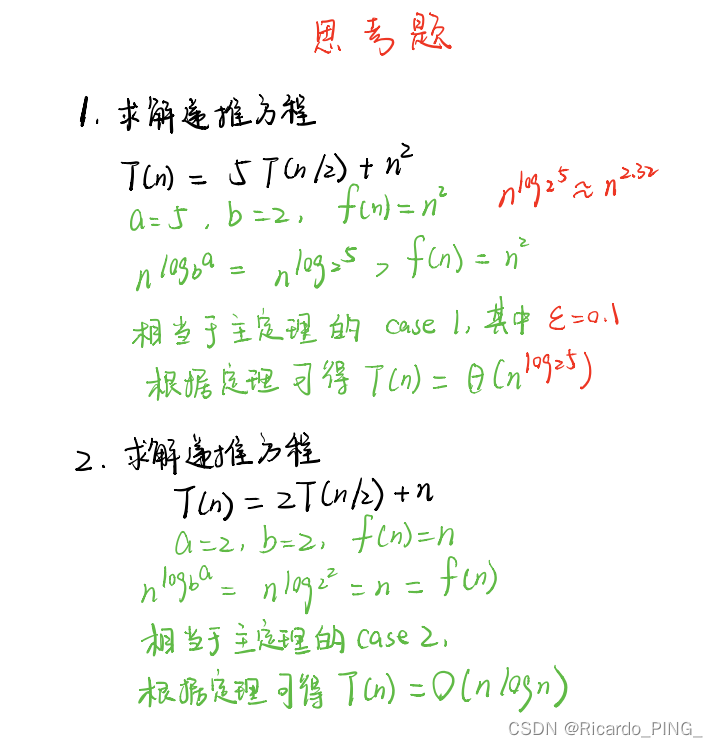 思考题
1. 求解递推方程
T(n) = 5T(n/2) + n²
a=5, b=2, f(n)=n²
n^{log₂5} ≈ n^{2.32}
n^{log_b a} = n^{log₂5} > f(n) = n²
相当于主定理的 case 1, 其中 ε=0.1
根据定理可得 T(n) = θ(n^{log₂5})
2. 求解递推方程
T(n) = 2T(n/2) + n
a=2, b=2, f(n)=n
n^{log_b a} = n^{log₂2} = n = f(n)
相当于主定理的case 2,
根据定理可得 T(n) = O(n logn)
CSDN @Ricardo_PING_